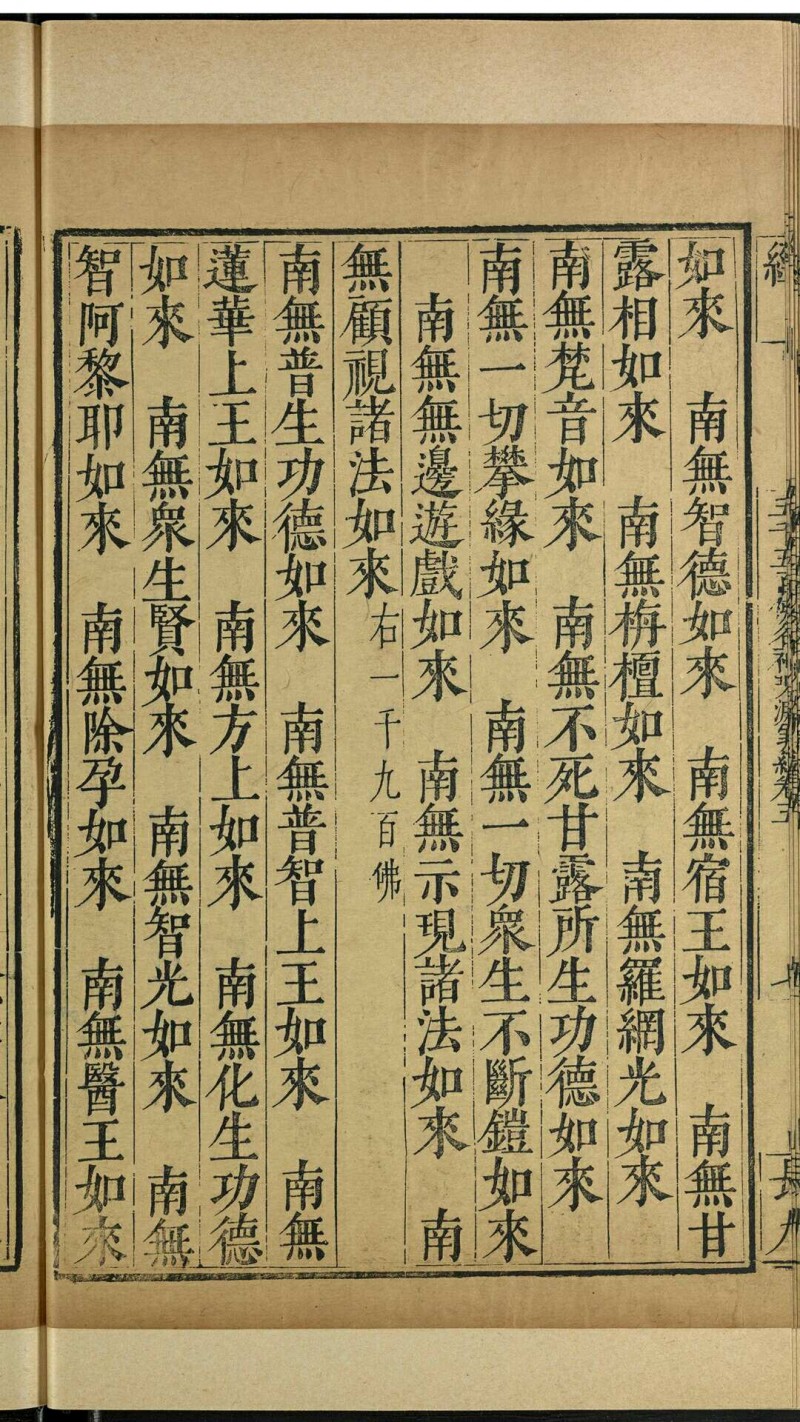 如來　南無智德如來　南無宿王如來　南無甘
露相如來　南無栴檀如來　南無羅網光如來
南無梵音如來　南無不死甘露所生功德如來
南無一切攀緣如來　南無一切衆生不斷鎧如來
南無無邊遊戲如來　南無示現諸法如來　南
無顧視諸法如來右一千九百佛
南無普生功德如來　南無普智上王如來　南無
蓮華上王如來　南無方上如來　南無化生功德
如來　南無衆生賢如來　南無智光如來　南無
智阿黎耶如來　南無除孕如來　南無醫王如來